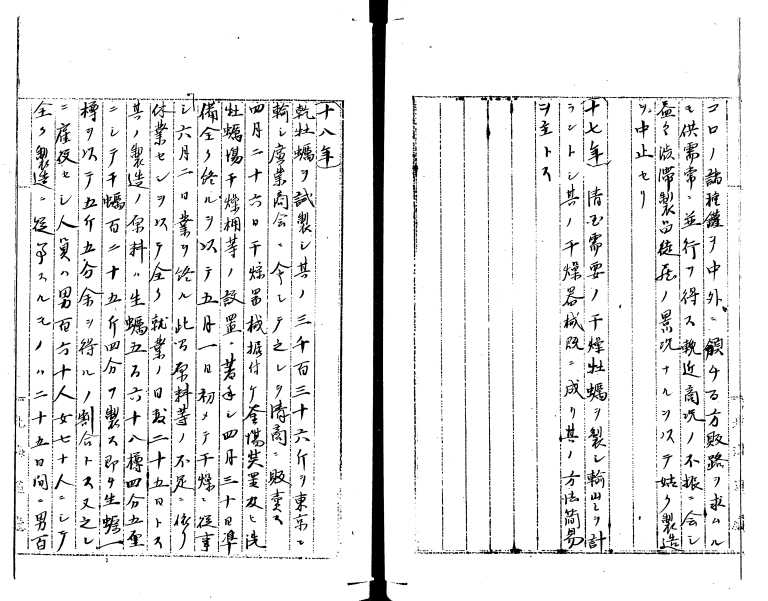 コロノ諸種罐ヲ中外ニ鬻ケル方販路ヲ求ムル
モ供需常ニ並行ヲ得ス輓近商況ノ不振ニ会シ
益々渋滞製品徒ノ景況ナルヲ以テ姑ク製造
ヲ中止セリ
十七年 清国需要ノ干燥牡蠣ヲ製シ輸出ヲ計
ラントシ其ノ干燥器械既ニ成リ其ノ方法簡易
ヲ主トス
十八年
乾牡蠣ヲ試製シ其ノ三千百三十六斤ヲ東京ニ
輸シ広業商会ニ令シテ之レヲ清商ニ販売ス
四月二十六日干燥器械据付ケ釜場装置及ヒ洗
牡蠣場干燥棚等ノ設置ニ着手シ四月三十日準
備全ク終ルヲ以テ五月一日初メテ干燥ニ従事
シ六月二日業ヲ終ル此間原料等ノ不足ニ依リ
休業セシヲ以テ全ク就業ノ日数二十五日トス
其ノ製造ノ原料ハ生蠣五百六十八樽四分五厘
ニシテ干蠣百二十五斤四分ヲ製ス即チ生蠣一
樽ヲ以テ五斤五分余ヲ得ルノ割合トス又之レ
ニ雇役セシ人員ハ男百六十人女七十人ニシテ
全ク製造ニ従事スルモノハ二十五日間ニ男百